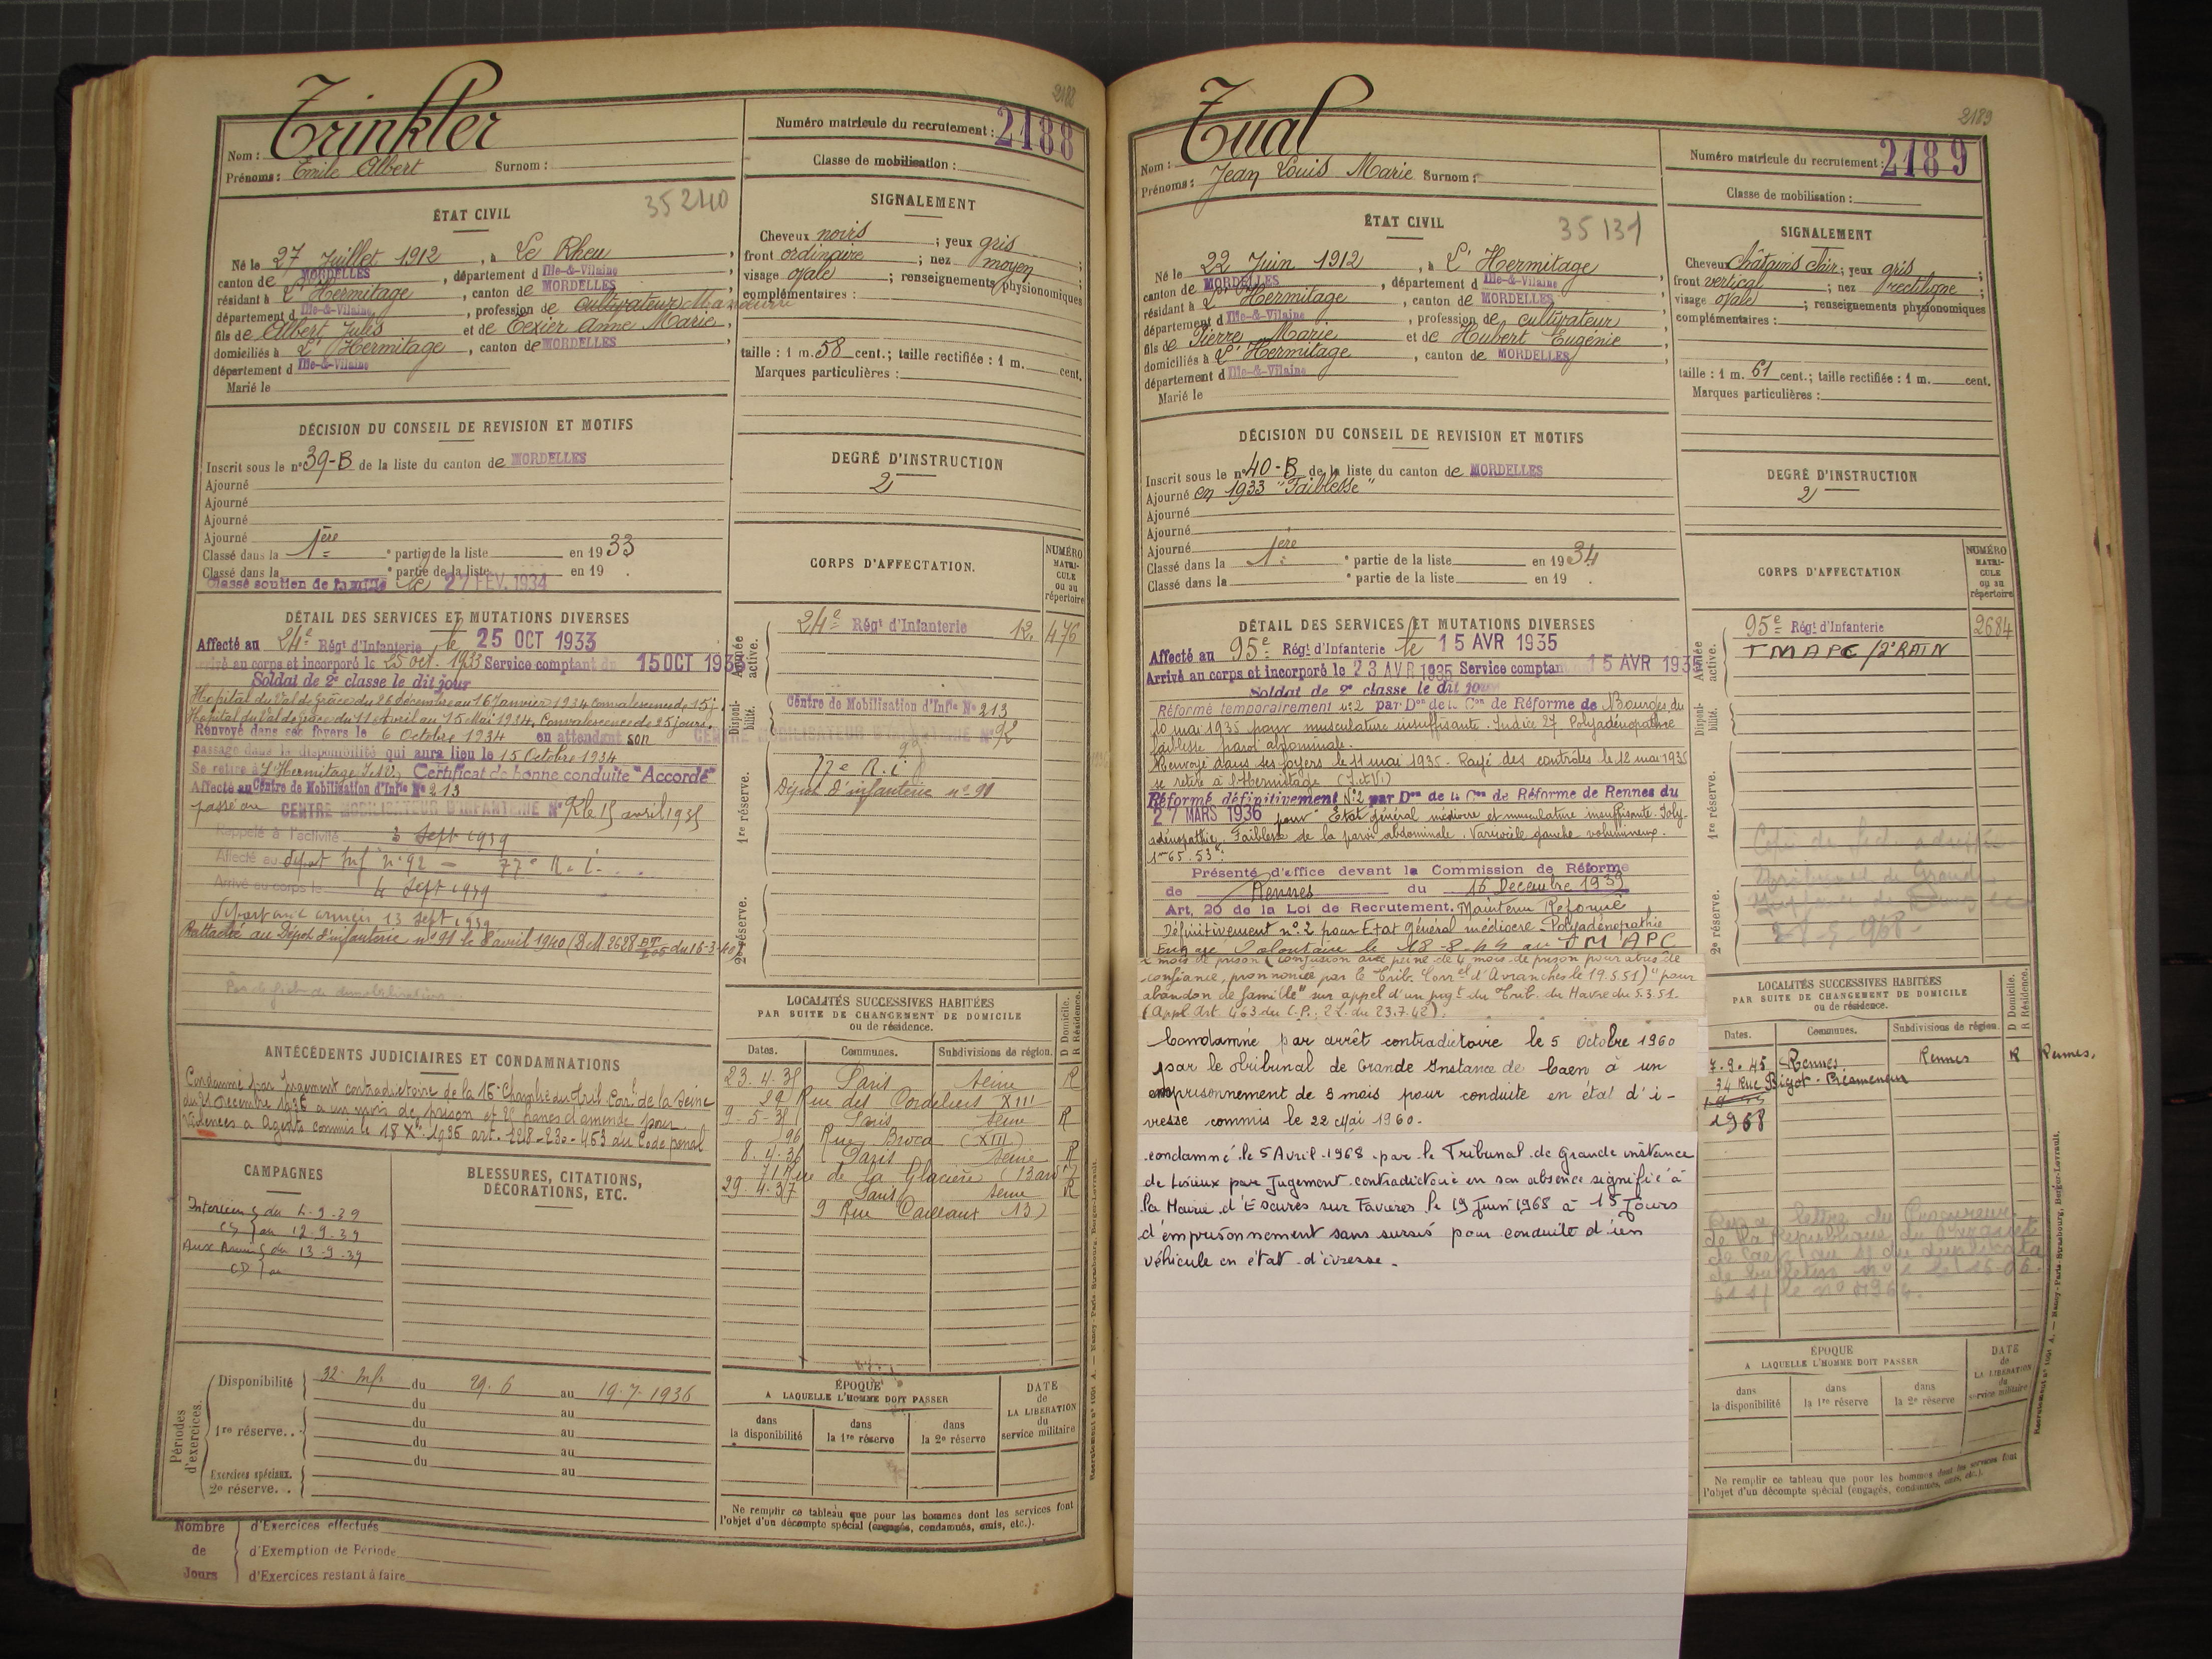 2188
Nom : Trinkler
Prénoms : Emile Albert Surnom :
Numéro matricule du recrutement : 2188
Classe de mobilisation :
ÉTAT CIVIL
35240
Né le 27 Juillet 1912, à Le Rheu,
canton de MORDELLES, département d Ille-&-Vilaine
résidant à L'Hermitage, canton de MORDELLES
département d Ille-&-Vilaine, profession de cultivateur
fils de Albert Jules et de Texier Anne Marie,
domiciliés à L'Hermitage, canton de MORDELLES,
département d Ille-&-Vilaine
Marié le
SIGNALEMENT
Cheveux noirs ; yeux gris ;
front ordinaire ; nez moyen ;
visage ovale ; renseignements physionomiques
complémentaires :
taille : 1 m. 58 cent.; taille rectifiée : 1 m. cent.
Marques particulières :
DÉCISION DU CONSEIL DE REVISION ET MOTIFS
Inscrit sous le n° 39-B de la liste du canton de MORDELLES
Ajourné
Ajourné
Ajourné
Ajourné
Classé dans la 1ère partie de la liste en 1933
Classé dans la partie de la liste en 19 .
Classé soutien de famille le 27 FEV. 1934
DEGRÉ D'INSTRUCTION
2
DÉTAIL DES SERVICES ET MUTATIONS DIVERSES
Affecté au 24e Régt d'Infanterie le 25 OCT 1933
Arrivé au corps et incorporé le 25 oct. 1933 Service comptant du 15 OCT 193
Soldat de 2e classe le dit jour
Hopital du Val de Grâce du 26 décembre au 16 Janvier 1934 convalescence de 15 j.
Hopital du Val de Grâce du 11 Avril au 15 Mai 1934. Convalescence de 25 jours.
Renvoyé dans ses foyers le 6 Octobre 1934 en attendant son
passage dans la disponibilité qui aura lieu le 15 Octobre 1934
Se retire à L'Hermitage I et V. Certificat de bonne conduite "Accordé"
Affecté au Centre de Mobilisation d'Infie N° 213
passé au CENTRE MOBILISATEUR D'INFANTERIE N° 92 le 15 avril 1935
Rappelé à l'activité 3 Sept 1939
Affecté au dépot Inf n° 92 - 77e R.i.
Arrivé au corps le 4 Sept 1939
Départ aux armées 13 sept 1939
Rattaché au Dépot d'infanterie n° 91 le 8 avril 1940
CORPS D'AFFECTATION.
NUMÉRO MATRICULE ou au répertoire
Armée active.
24e Régt d'Infanterie 12. 476
Disponibilité.
Centre de Mobilisation d'Infie N° 213
CENTRE MOBILISATEUR D'INFANTERIE N° 92
1re réserve.
77e R.i
Dépôt d'infanterie n° 91
2e réserve.
ANTÉCÉDENTS JUDICIAIRES ET CONDAMNATIONS
Condamné par Jugement contradictoire de la 16e Chambre du Trib. Corl de la Seine
du 21 Decembre 1936 a un mois de prison et 25 francs d'amende pour
Violences a Agents commis le 18 Xbre 1936 art. 228-230-463 du Code pénal
LOCALITÉS SUCCESSIVES HABITÉES
PAR SUITE DE CHANGEMENT DE DOMICILE
ou de résidence.
D Domicile.
R Résidence.
Dates. Communes. Subdivisions de région.
23.4.35 Paris Seine R
29 Rue des Cordeliers XIII
9-5-35 Paris Seine R
96 Rue Broca (XIII)
8.4.36 Paris Seine R
71 Rue de la Glacière 13
29.4.37 Paris Seine R
9 Rue Caillaux 13)
CAMPAGNES
Intérieur du 4.9.39
CS au 12.9.39
Aux Armées du 13.9.39
CD au
BLESSURES, CITATIONS,
DÉCORATIONS, ETC.
Périodes d'exercices.
Disponibilité 32. Inf. du 29.6 au 19.7.1936
du au
1re réserve.. du au
du au
du au
Exercices spéciaux. au
2e réserve. .
ÉPOQUE
A LAQUELLE L'HOMME DOIT PASSER
dans la disponibilité
dans la 1re réserve
dans la 2e réserve
DATE
de
LA LIBERATION
du
service militaire
Ne remplir ce tableau que pour les hommes dont les services font
l'objet d'un décompte spécial (engagés, condamnés, omis, etc.).
Nombre de Jours
d'Exercices effectués
d'Exemption de Période
d'Exercices restant à faire
2189
Nom : Tual
Prénoms : Jean Louis Marie Surnom :
Numéro matricule du recrutement : 2189
Classe de mobilisation :
ÉTAT CIVIL
35131
Né le 22 Juin 1912, à L'Hermitage
canton de MORDELLES, département d Ille-&-Vilaine
résidant à L'Hermitage, canton de MORDELLES
département d Ille-&-Vilaine, profession de cultivateur
fils de Pierre Marie et de Hubert Eugénie
domiciliés à L'Hermitage, canton de MORDELLES
département d Ille-&-Vilaine
Marié le
SIGNALEMENT
Cheveux châtains clair ; yeux gris ;
front vertical ; nez rectiligne ;
visage ovale ; renseignements physionomiques
complémentaires :
taille : 1 m. 61 cent.; taille rectifiée : 1 m. cent.
Marques particulières :
DÉCISION DU CONSEIL DE REVISION ET MOTIFS
Inscrit sous le n° 40-B de la liste du canton de MORDELLES
Ajourné en 1933 "Faiblesse"
Ajourné
Ajourné
Ajourné
Classé dans la 1ère partie de la liste en 1934
Classé dans la partie de la liste en 19 .
DEGRÉ D'INSTRUCTION
2
DÉTAIL DES SERVICES ET MUTATIONS DIVERSES
Affecté au 95e Régt d'Infanterie le 15 AVR 1935
Arrivé au corps et incorporé le 23 AVR 1935 Service comptant 15 AVR 1935
Soldat de 2e classe le dit jour
Réformé temporairement n°2 par Don de la Con de Réforme de Bourges du
10 mai 1935 pour musculature insuffisante. Indice 27 Polyadénopathie
faiblesse paroi abdominale.
Renvoyé dans ses foyers le 11 mai 1935. Rayé des contrôles le 12 mai 1935
se retire à l'Hermitage (I. et V.)
Réformé définitivement N°2 par Don de la Con de Réforme de Rennes du
27 MARS 1936 pour "Etat général médiocre et musculature insuffisante. Poly-
adénopathie. Faiblesse de la paroi abdominale. Varicocèle gauche volumineux.
1m65.53k.
Présenté d'office devant la Commission de Réforme
de Rennes du 16 Decembre 1939
Art. 20 de la Loi de Recrutement. Maintenu Réformé
Définitivement n°2 pour Etat général médiocre - Polyadénopathie
Engagé Volontaire le 18-8-44 au TMAPC
CORPS D'AFFECTATION
NUMÉRO MATRICULE ou au répertoire
Armée active.
95e Régt d'Infanterie 2684
TMAPC / 2e RMTN
Disponibilité.
1re réserve.
2e réserve.
mois de prison (confusion avec peine de 4 mois de prison pour abus de
confiance, prononcée par le Trib. Correl d'Avranches le 19.5.51) "pour
abandon de famille" sur appel d'un jugt du Trib. du Havre du 5.3.51.
(Appl. Art. 463 du C.P.; 2 L. du 23.7.42).
Condamné par arrêt contradictoire le 5 Octobre 1960
par le Tribunal de Grande Instance de Caen à un
emprisonnement de 3 mois pour conduite en état d'i-
vresse commis le 22 Mai 1960.
condamné le 5 Avril 1968 par le Tribunal de Grande instance
de Lisieux par Jugement contradictoire en son absence signifié à
la Mairie d'Escures sur Favieres le 19 Juin 1968 à 15 Jours
d'emprisonnement sans sursis pour conduite d'un
véhicule en état d'ivresse.
LOCALITÉS SUCCESSIVES HABITÉES
PAR SUITE DE CHANGEMENT DE DOMICILE
ou de résidence.
D Domicile.
R Résidence.
Dates. Communes. Subdivisions de région.
7.9.45 Rennes Rennes R Rennes.
34 Rue Bigot-Préameneu
1968
ÉPOQUE
A LAQUELLE L'HOMME DOIT PASSER
dans la disponibilité
dans la 1re réserve
dans la 2e réserve
DATE
de
LA LIBERATION
du
service militaire
Ne remplir ce tableau que pour les hommes dont les services font
l'objet d'un décompte spécial (engagés, condamnés, omis, etc.).